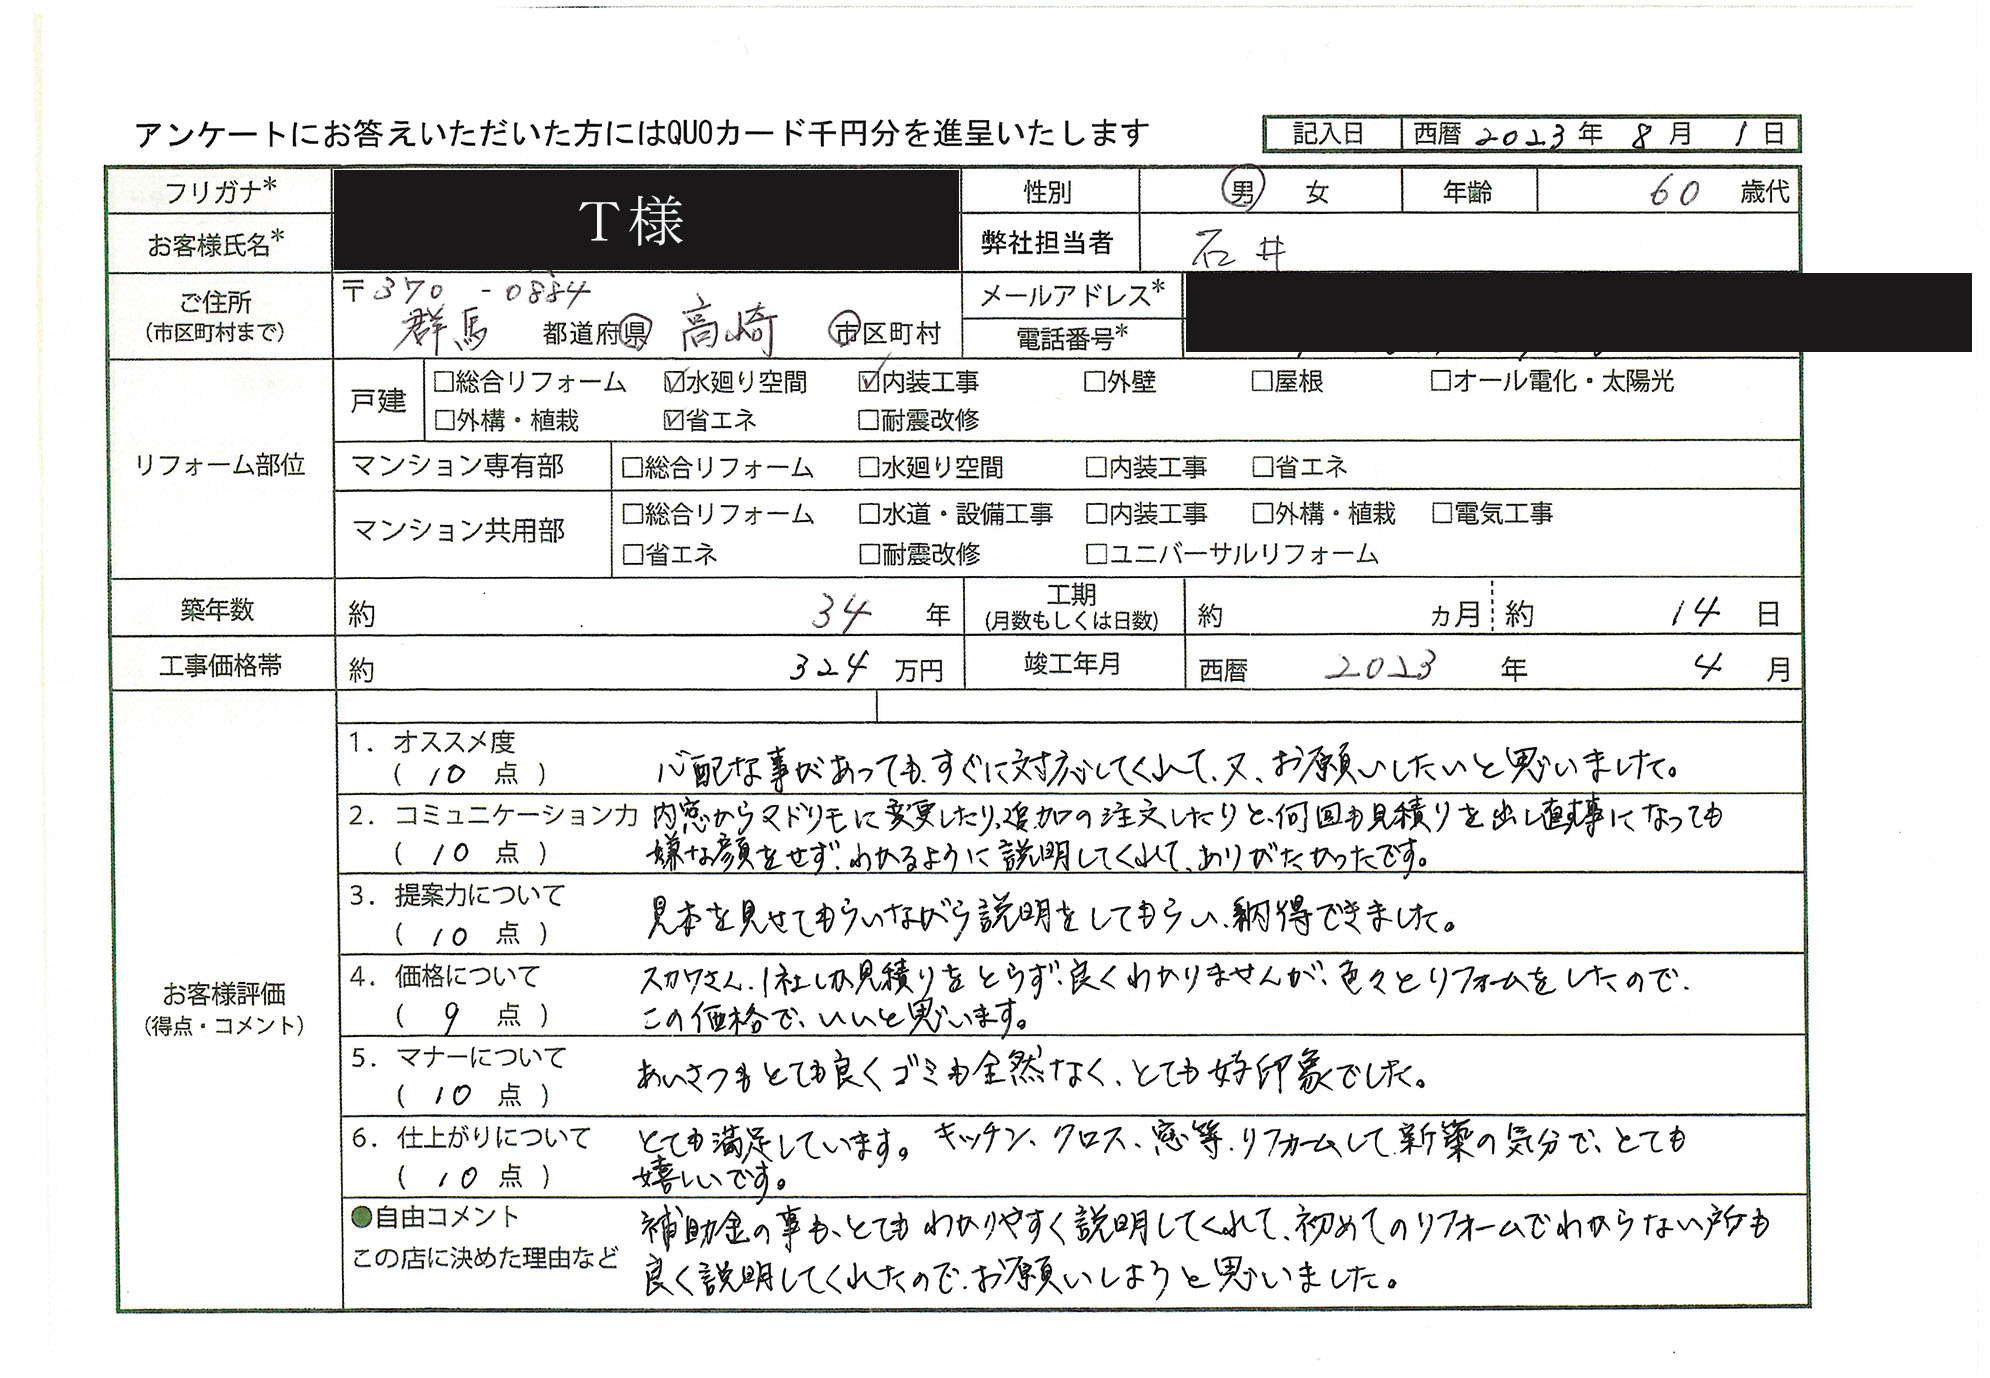 アンケートにお答えいただいた方にはQUOカード千円分を進呈いたします
記入日 西暦 2023 年 8 月 1 日
フリガナ* T様 性別 男 女 年齢 60 歳代
お客様氏名* 弊社担当者 石井
ご住所 (市区町村まで) 〒370-0884 メールアドレス*
群馬 都道府県 高崎 市区町村 電話番号*
リフォーム部位
戸建 □総合リフォーム ☑水廻り空間 ☑内装工事 □外壁 □屋根 □オール電化・太陽光
□外構・植栽 ☑省エネ □耐震改修
マンション専有部 □総合リフォーム □水廻り空間 □内装工事 □省エネ
マンション共用部 □総合リフォーム □水道・設備工事 □内装工事 □外構・植栽 □電気工事
□省エネ □耐震改修 □ユニバーサルリフォーム
築年数 約 34 年 工期 (月数もしくは日数) 約 ヵ月 約 14 日
工事価格帯 約 324 万円 竣工年月 西暦 2023 年 4 月
お客様評価
(得点・コメント)
1. オススメ度
( 10 点 ) 心配な事があっても、すぐに対応してくれて、又、お願いしたいと思いました。
2. コミュニケーション力 内窓からマドリモに変更したり、追加の注文したりと、何回も見積りを出し直す事になっても
( 10 点 ) 嫌な顔をせず、わかるように説明してくれて、ありがたかったです。
3. 提案力について
( 10 点 ) 見本を見せてもらいながら説明をしてもらい、納得できました。
4. 価格について スカワさん、1社しか見積りをとらず、良くわかりませんが、色々とリフォームをしたので、
( 9 点 ) この価格で、いいと思います。
5. マナーについて
( 10 点 ) あいさつもとても良くゴミも全然なく、とても好印象でした。
6. 仕上がりについて とても満足しています。キッチン、クロス、窓等、リフォームして、新築の気分で、とても
( 10 点 ) 嬉しいです。
●自由コメント 補助金の事も、とてもわかりやすく説明してくれて、初めてのリフォームでわからない所も
この店に決めた理由など 良く説明してくれたので、お願いしようと思いました。